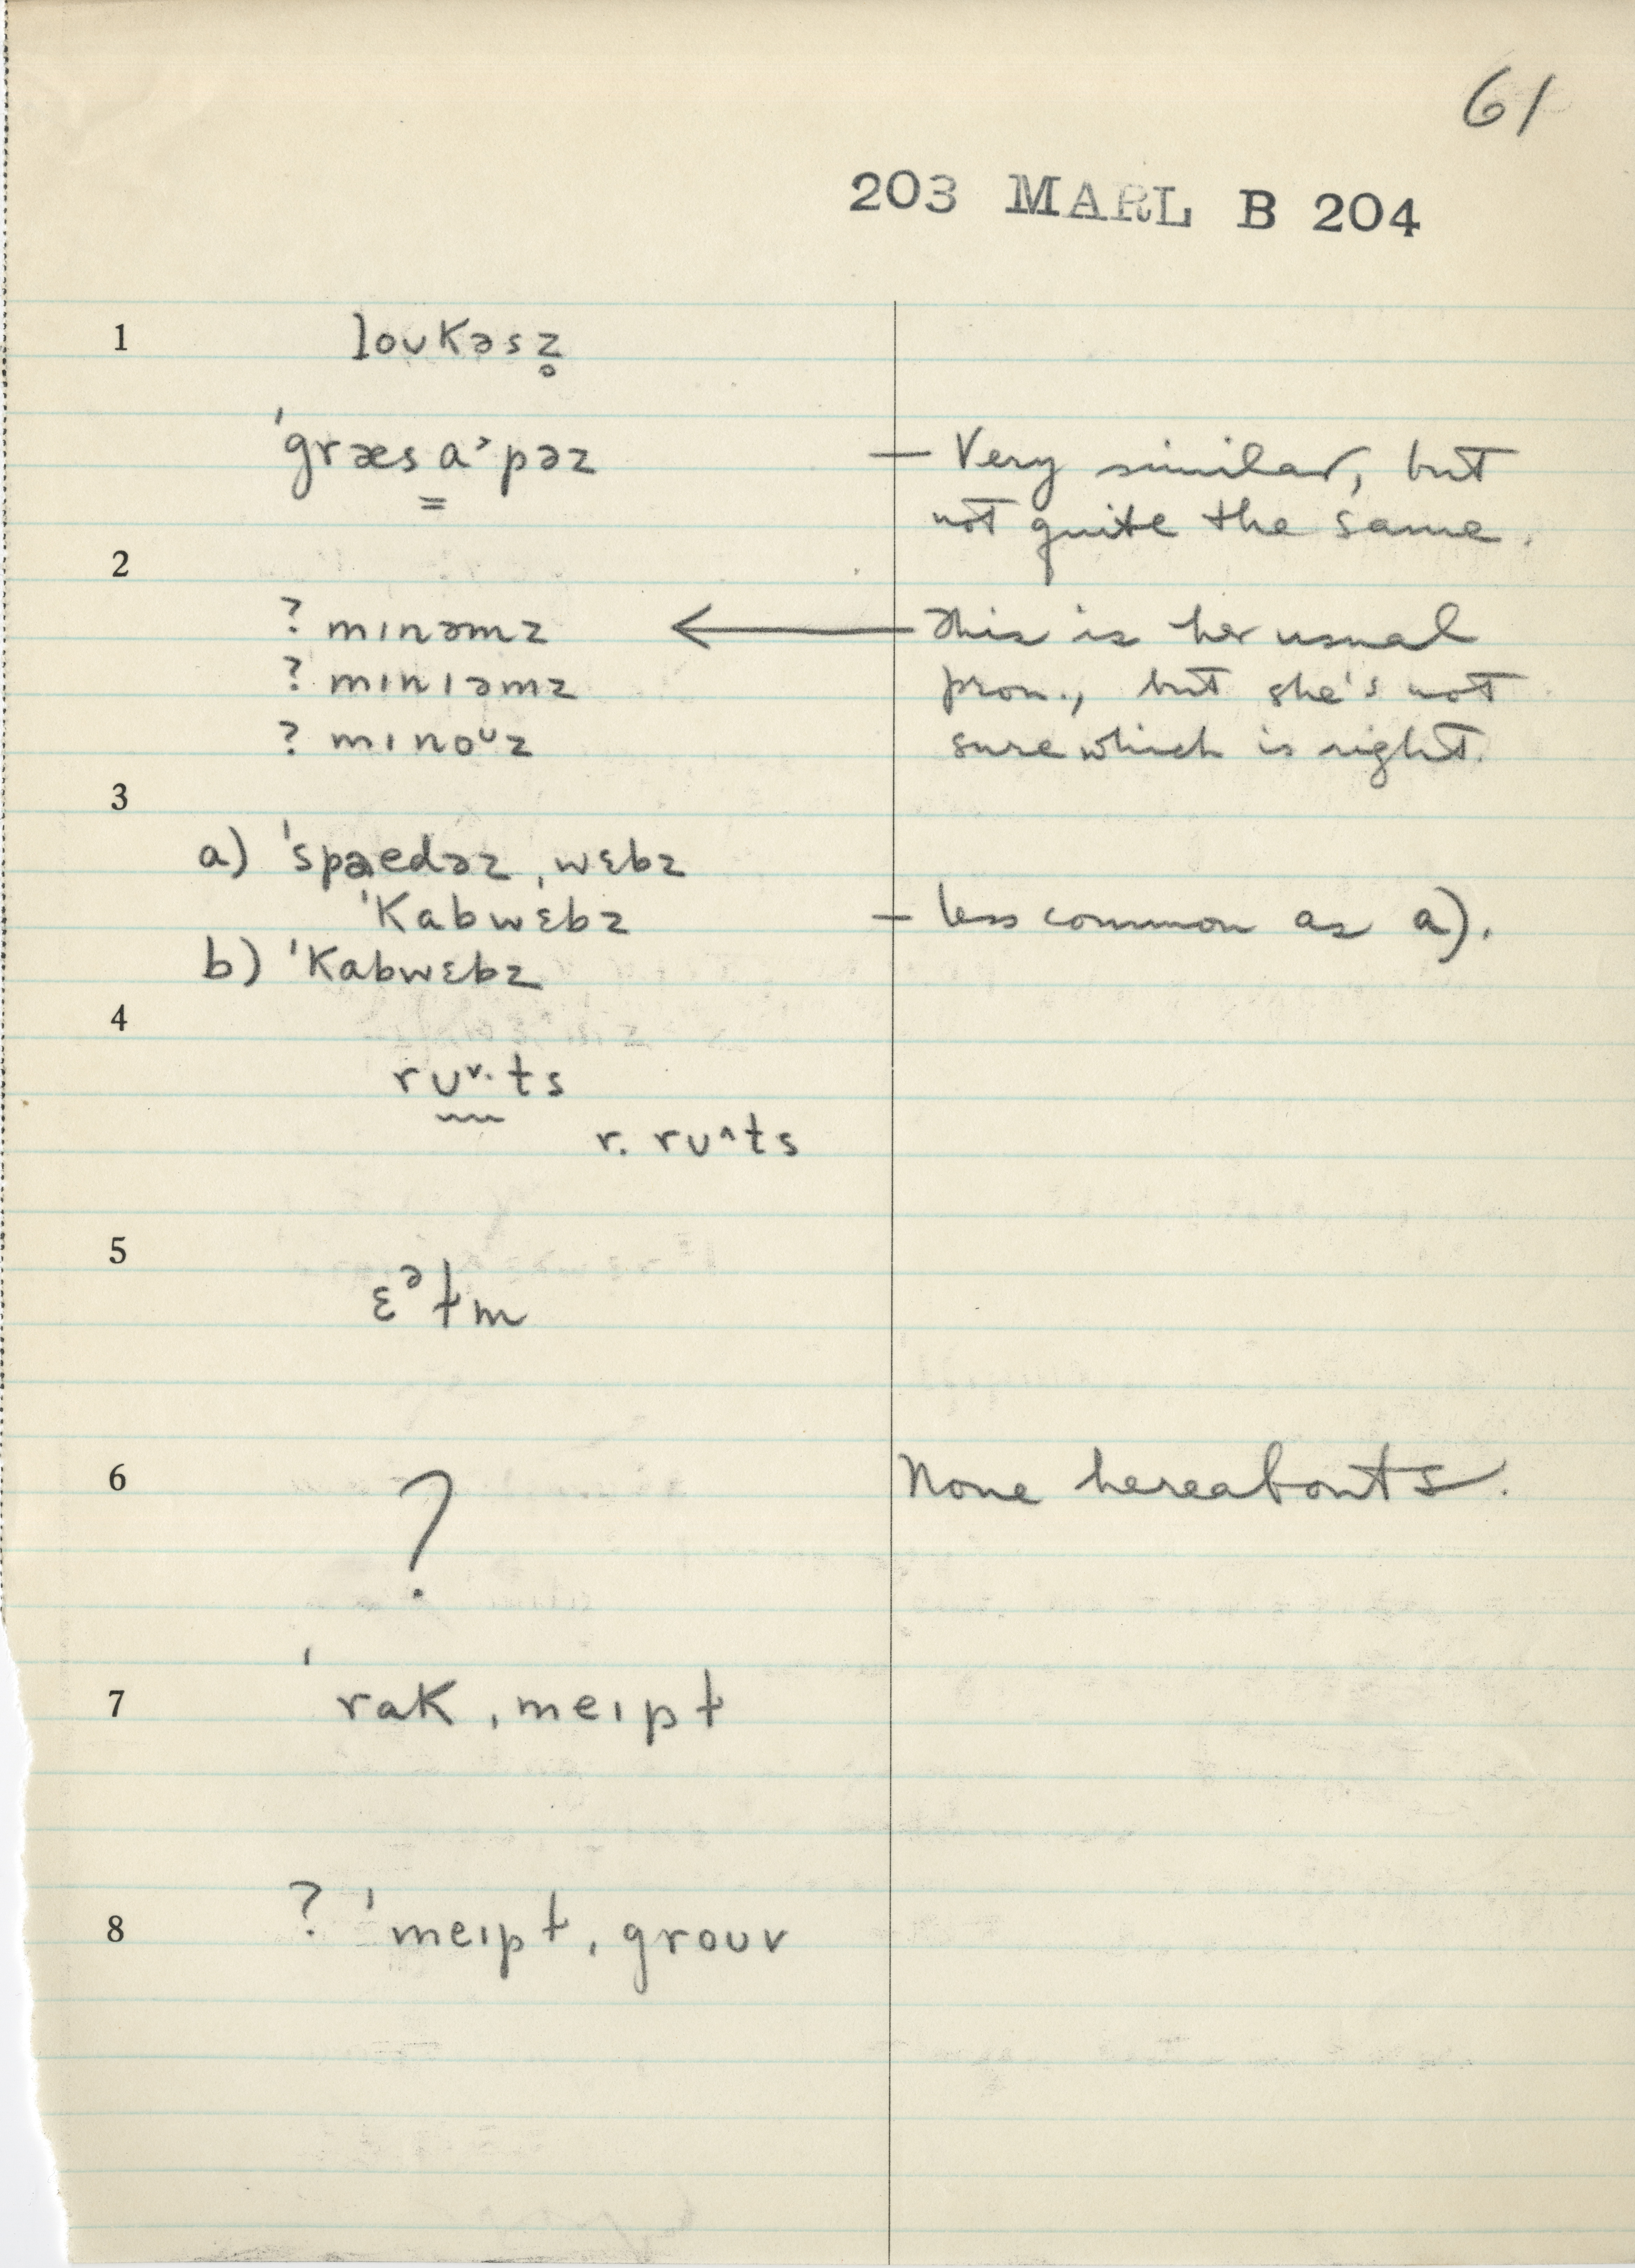 61
203 MARL B 204
1 loʊkəsz̥
ˈgræs a˃pəz — Very similar, but
not quite the same.
2
? mɪnəmz ← This is her usual
? mɪnɪəmz pron., but she's not
? mɪnoᶷz sure which is right.
3
a) ˈspaedəz ˌwɛbz
ˈkabwɛbz — less common as a).
b) ˈkabwɛbz
4
rʊ˅·ts
r. rʊ^ts
5
ɛᵊɫm
6 ? None hereabouts.
7 ˈrak ˌmeɪpɫ
8 ? ˈmeɪpɫ ˌgroʊv